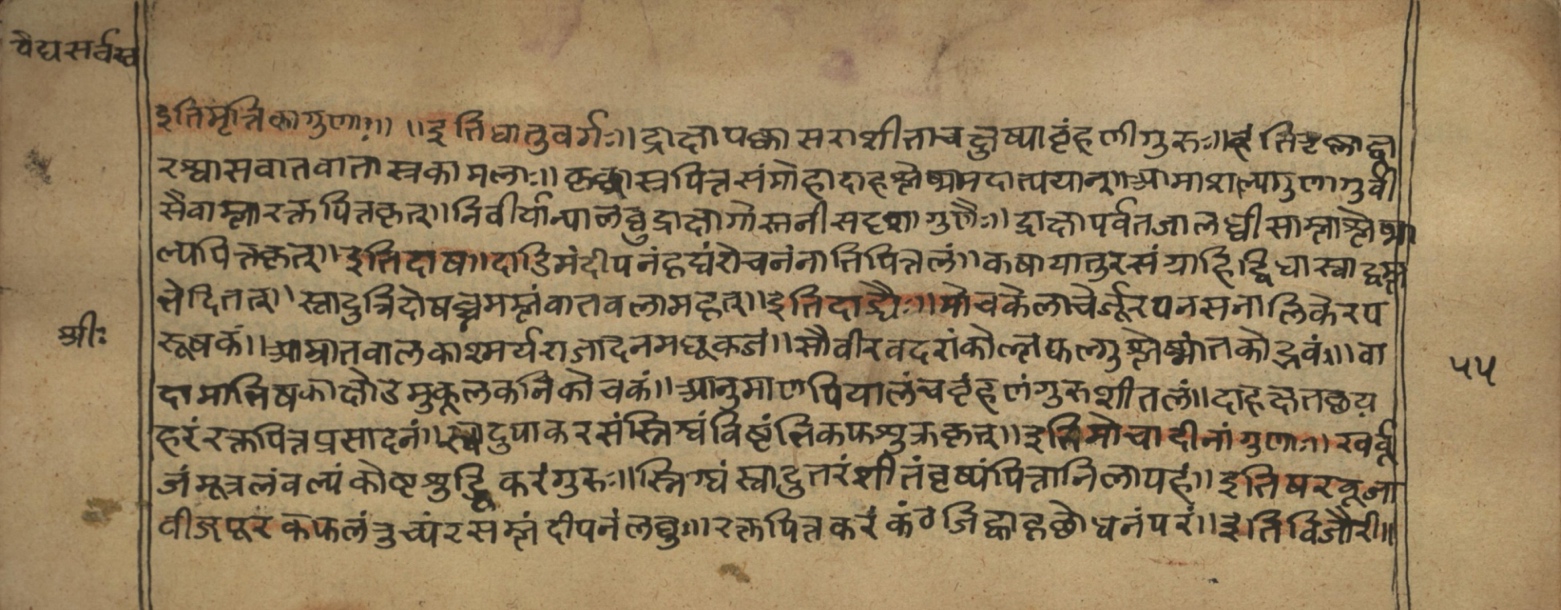 वैद्यसर्वस्व
इतिमृत्तिकागुणाः।। ।।इतिधातुवर्गः।। द्राक्षापक्वासराशीताचक्षुष्याबृंहणीगुरुः।। हंतितृष्णाज्व
रश्वासवातवातास्रकामलाः।। कृच्छ्रास्रपित्तसंमोहादाहश्लेष्ममदात्पयान्।। आमाशाल्पगुणागुर्वी
सैवाम्लारक्तपित्तकृत्।। निवीर्यान्पालघुद्राक्षागोस्तनीसदृशागुणैः।। द्राक्षापर्वतजालघ्वीसाम्लाश्लेष्मा
ल्पपित्तकृत्।। इतिदाषा।। दाडिमंदीपनंहृद्यंरोचनंनातिपित्तलं।। कषायानुरसंयाहिद्विधास्वाद्वम्ल
त्तेदितत्।। स्वादुत्रिदोषघ्नमम्लंवातवलामहृत्।। इतिदाड्यैः।। मोचकेलाचेर्जूरपनसनालिकेरप
रूषकं।। आम्रातवालकाश्मर्यराजादनमधूकजं।। सौवीरवदरांकोल्लफलगुश्लेष्मांतकोद्रवं।। वा
श्रीः
दामाभिषकाक्षोडमुकूलकनिकोचकं।। आनुमाणपियालंचबृंहणंगुरुशीतलं।। दाहक्षतक्षय
५५
हरंरक्तपित्तप्रसादनं।। स्वादुपाकरसंस्निग्धंविष्टंभिकफशुक्रकृत्।। इतिमोचादीनांगुणाः।। खर्वू
जंमूत्रलंवल्यंकोष्टशुद्धिकरंगुरुः।। स्निग्धंस्वादुतरंशीतंवृष्यंपित्तानिलापहं।। इतिषरबूजा
वीजपूरकफलंरुच्यंरसम्लंदीपनंलघु।। रक्तपित्तकरंकंठजिह्वाहृछोधनंपरं।। इतिविजौरी।।